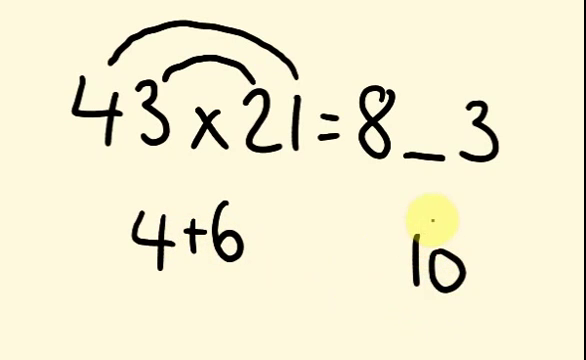 43 x 21 = 8_3
4+6 10